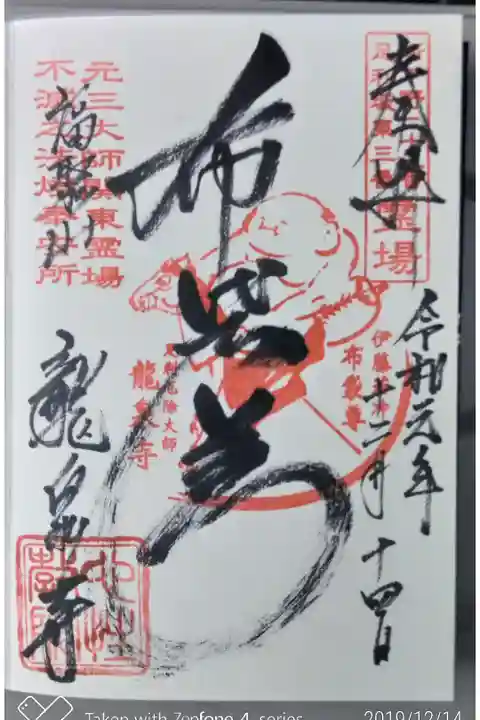 奉拝
霊場
令和元年
十二月十四日
布袋尊
伊藤
布袋尊
足利厄除大師
龍泉寺
元三大師関東霊場
不滅之法燈奉安所
福聚山
龍泉寺
Taken with Zenfone 4 series
2019/12/14